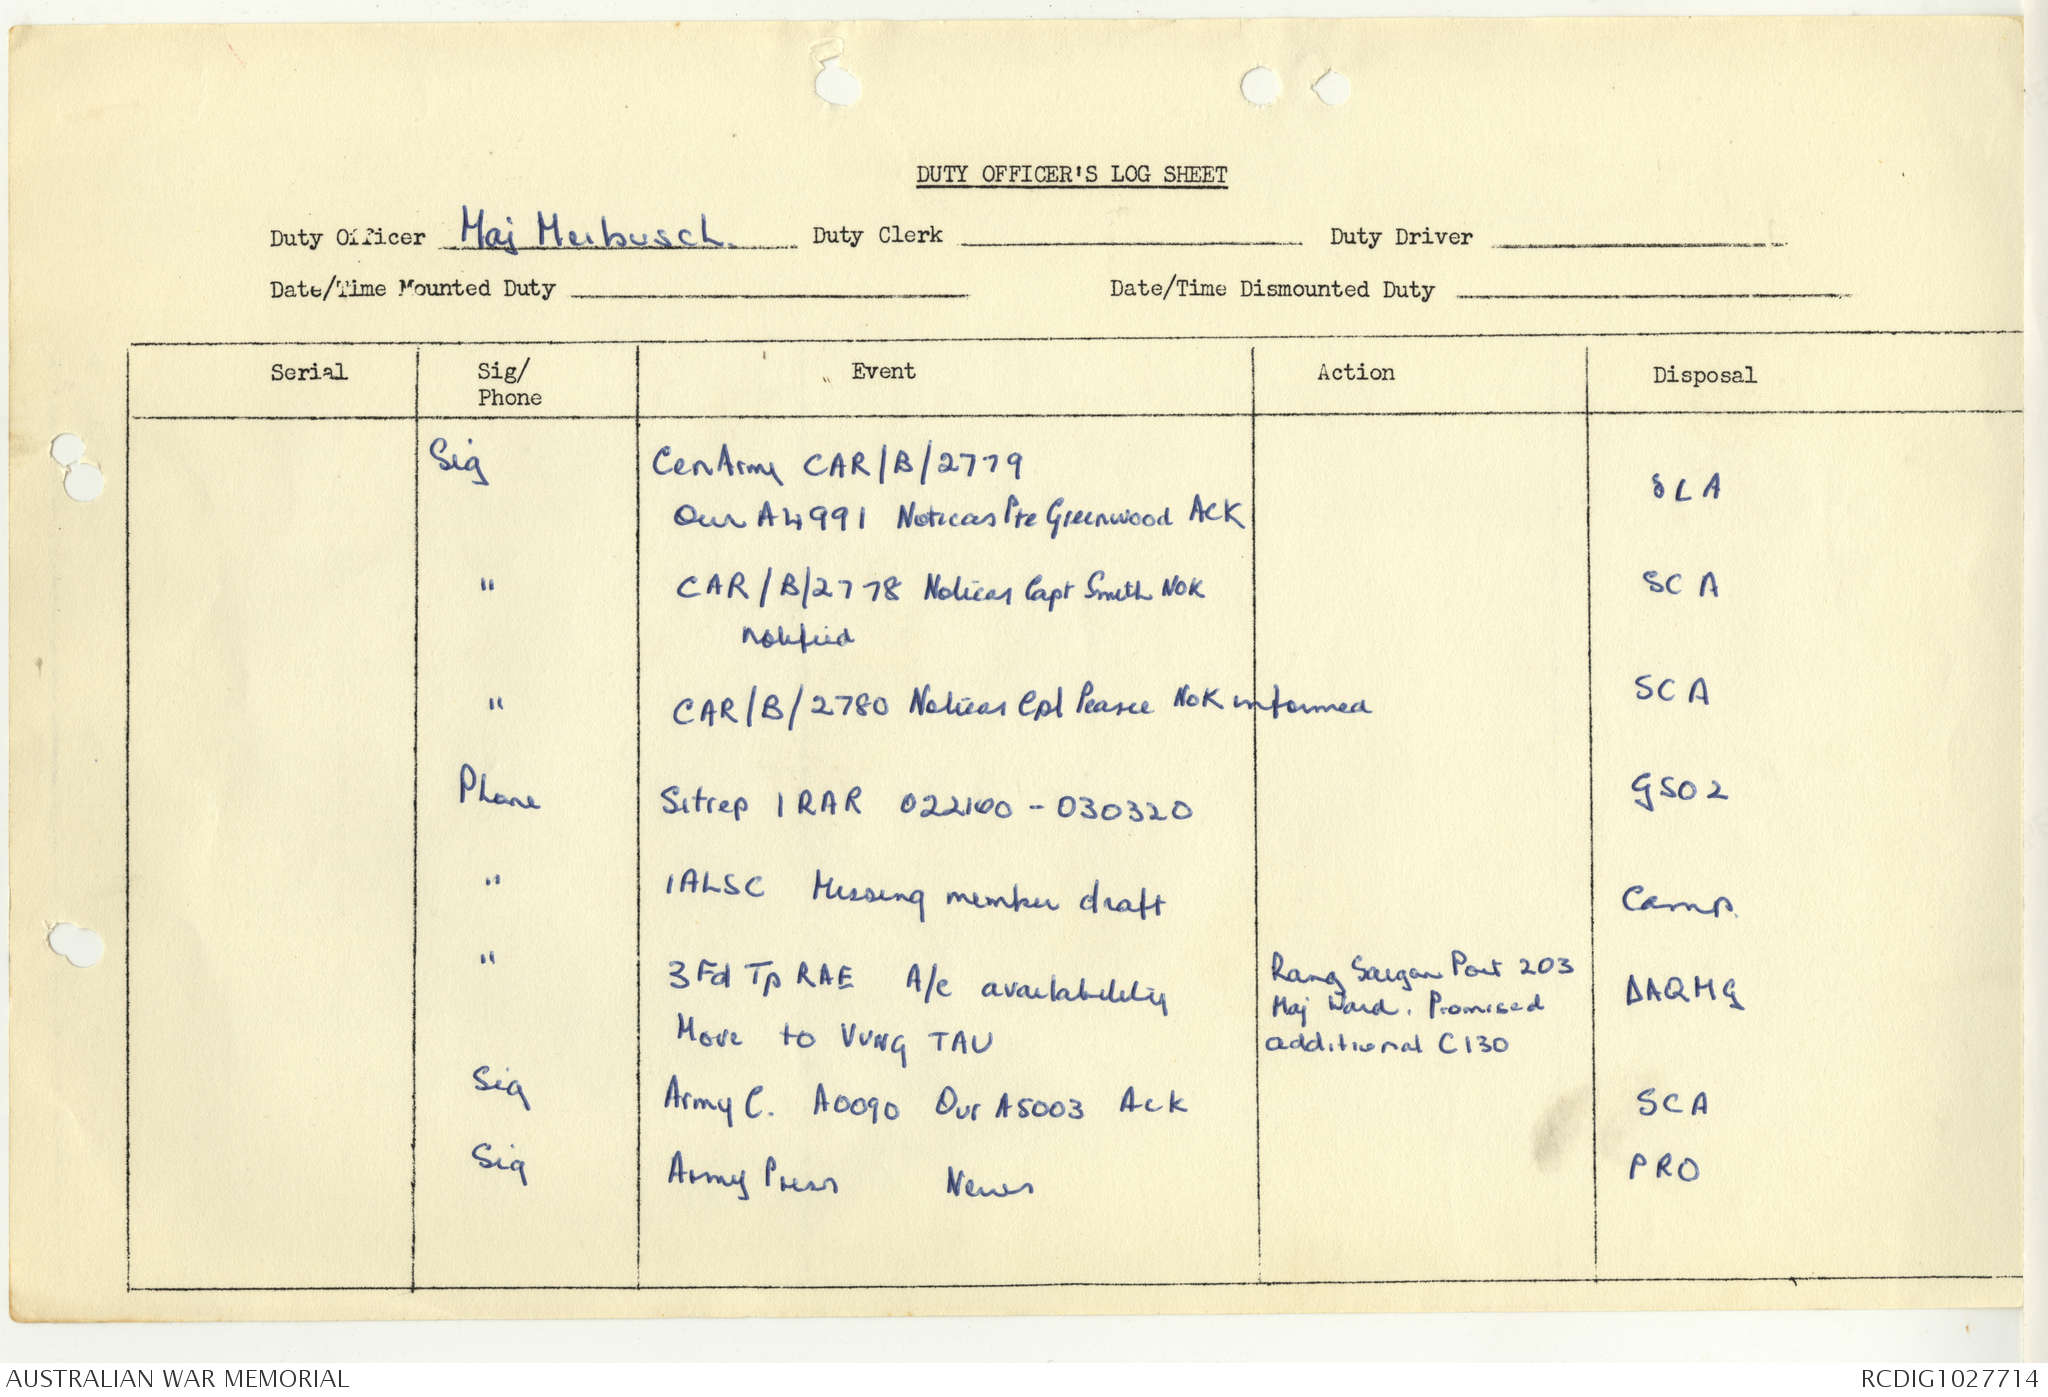 DUTY OFFICER'S LOG SHEET
Duty Officer Maj Meibusch. Duty Clerk Duty Driver
Date/Time Mounted Duty Date/Time Dismounted Duty
Serial Sig/ Event Action Disposal
Phone
Sig CenArmy CAR/B/2779
Our A4991 Noticas Pte Greenwood Ack SCA
" CAR/B/2778 Noticas Capt Smith NOK SCA
notified
" CAR/B/2780 Noticas Cpl Pearce NOK informed SCA
Phone Sitrep 1 RAR 022100 - 030320 GSO2
" 1ALSC Missing member draft Camp.
" 3 Fd Tp RAE A/c availability Rang Saigon Port 203 DAQMG
Move to VUNG TAU Maj Ward. Promised
additional C130
Sig Army C. A0090 Our A5003 Ack SCA
Sig Army Press News PRO
AUSTRALIAN WAR MEMORIAL RCDIG1027714